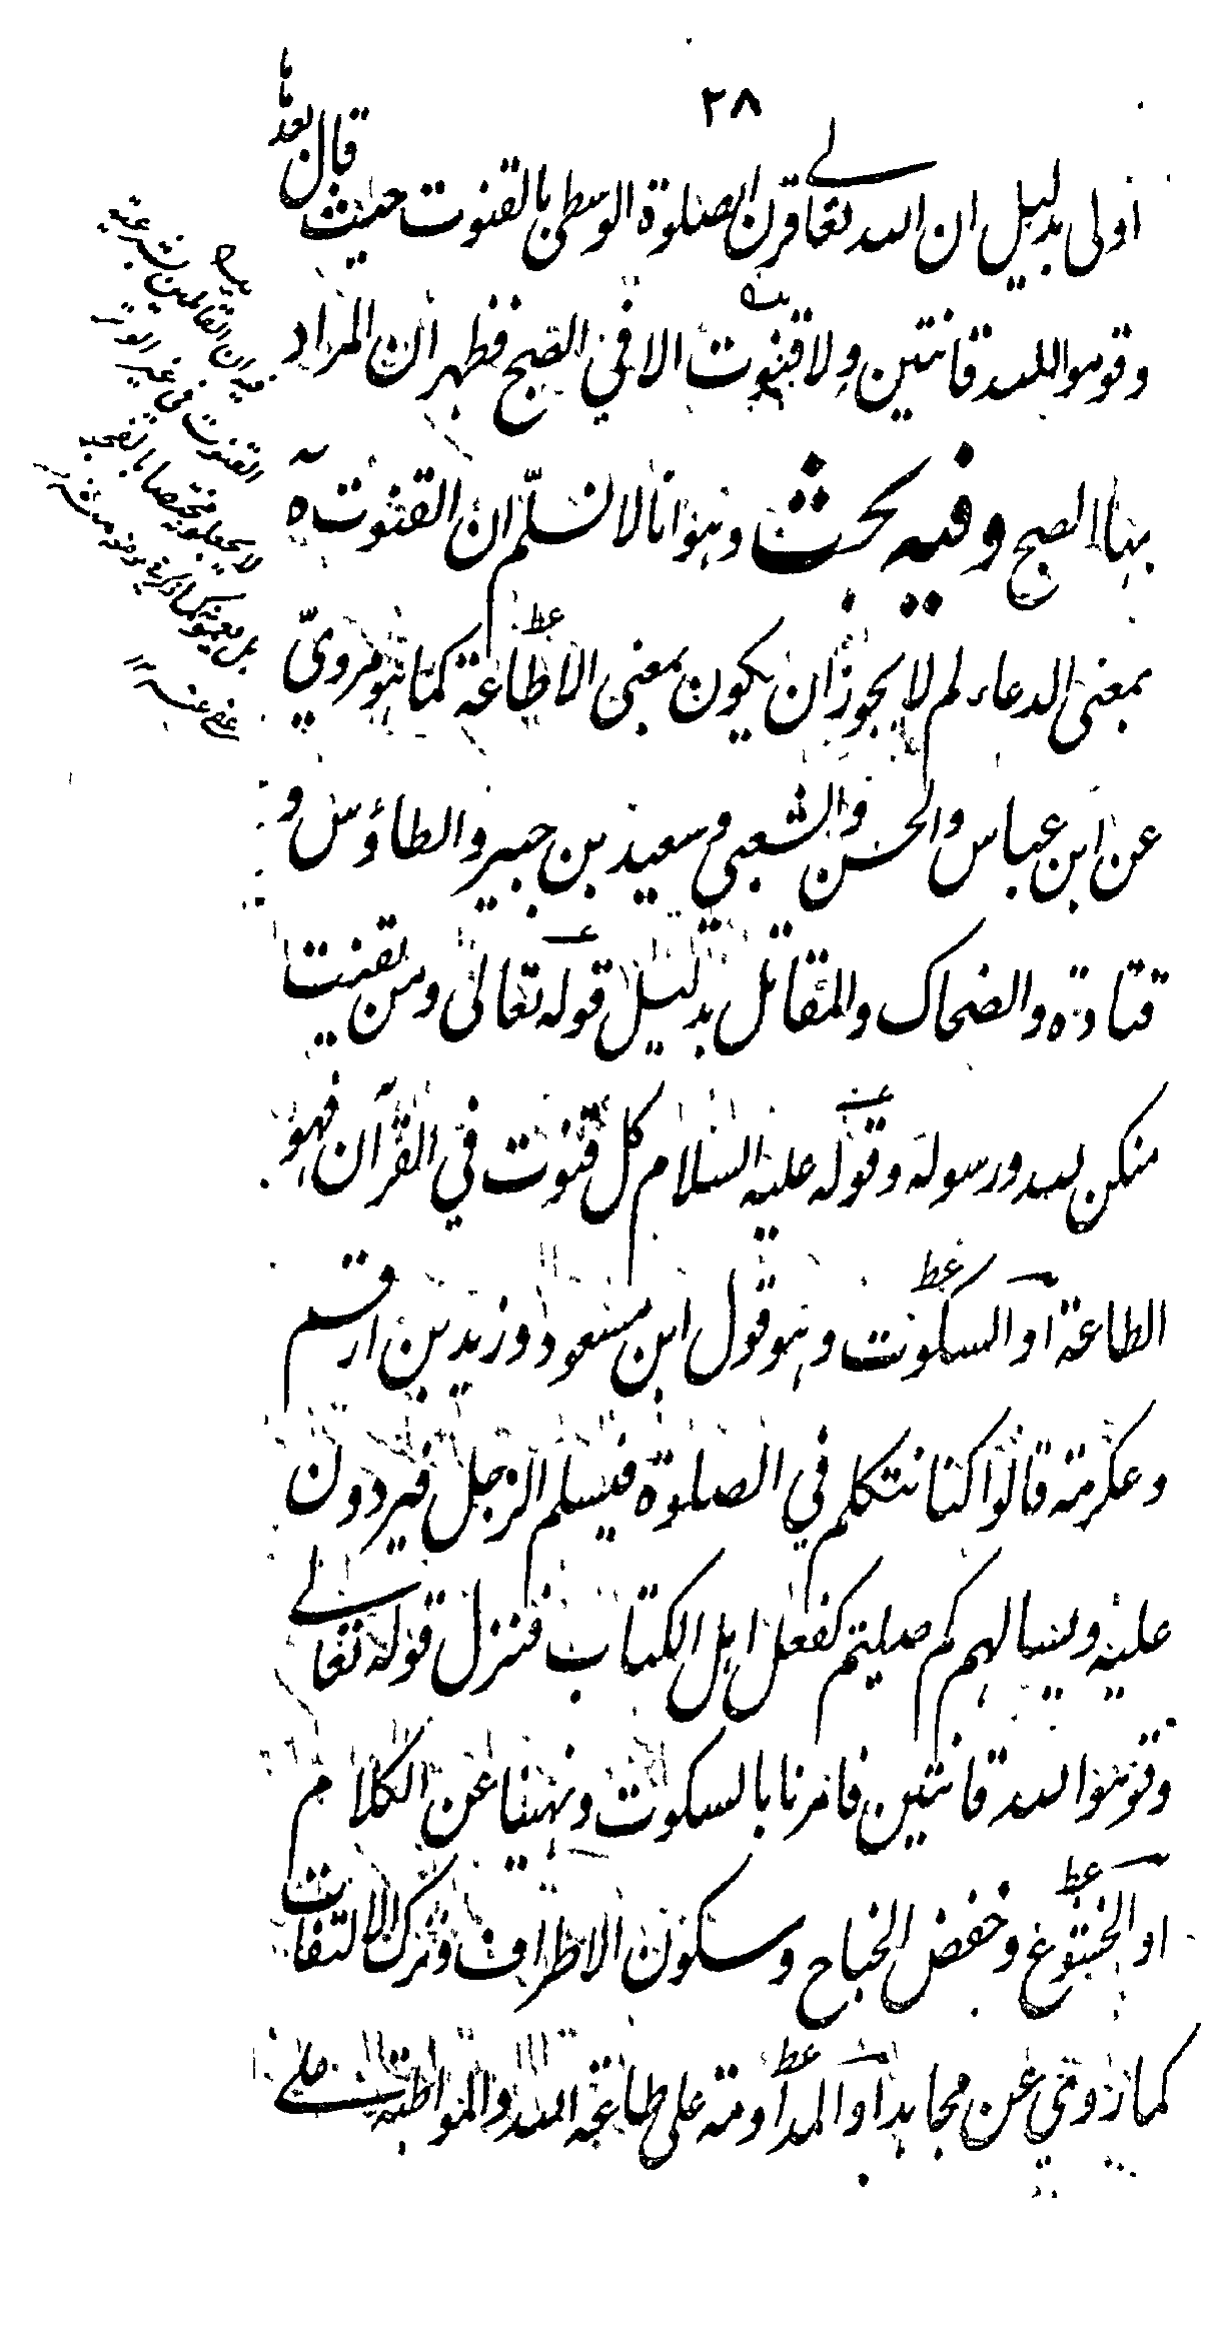 ٢٨
اولى بدليل ان الله تعالے قرن الصلوة الوسطى بالقنوت حيث قال بعدها
وقوموا لله قانتين ولا قنوت الا في الصبح فظهر ان المراد
بها الصبح وفيه بحث وهو انا لا نسلّم ان القنوت آه
بمعنى الدعاء لم لا يجوز ان يكون بمعنى الاطاعة كما هو مرويّ
عن ابن عباس والحسن والشعبي وسعيد بن جبير والطاؤس و
قتادة والضحاك والمقاتل بدليل قوله تعالى ومن يقنت
منكن لله ورسوله وقوله عليه السلام كل قنوت في القرآن فهو
الطاعة او السكوت وهو قول ابن مسعود وزيد بن ارقم
وعكرمة قالوا كنا نتكلم في الصلوة فيسلم الرجل فيردون
عليه ويسالهم كم صليتم كفعل اهل الكتاب فنزل قوله تعالے
وقوموا لله قانتين فامرنا بالسكوت ونهينا عن الكلام
او الخشوع وخفض الجناح وسكون الاطراف وترك الالتفات
كما روي عن مجاهد او المداومة على طاعة الله والمواظبة علے
فيه ان القائلين بشرعية
القنوت في غير الوتر
لا يجعلونه مختصا بالفجر